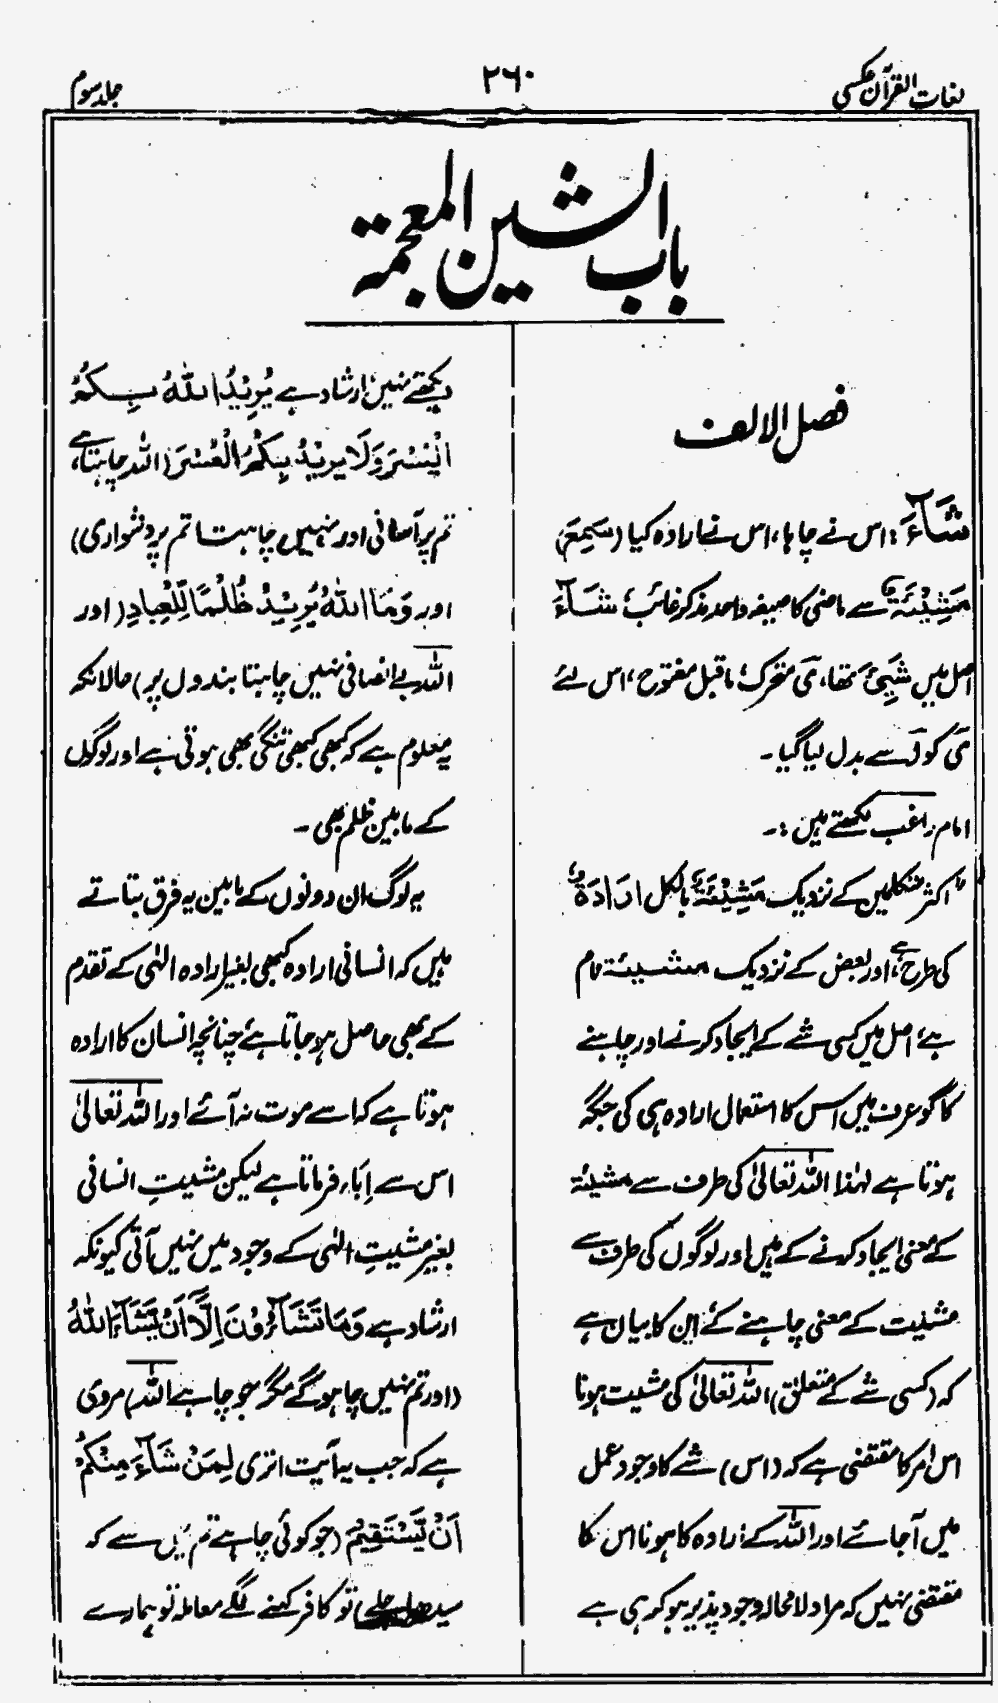 لغات القرآن عکسی
۲۶۰
جلد سوم
باب الشین المعجمۃ
فصل الالف
شَآءَ: اس نے چاہا، اس نے ارادہ کیا (سَمِعَ)
مَشِیْئَۃٌ سے ماضی کا صیغہ واحد مذکر غائب، شَآءَ
اصل میں شَیِئَ تھا، یَ متحرک، ماقبل مفتوح، اس لئے
یَ کو اَ سے بدل لیا گیا۔
امام راغب لکھتے ہیں :۔
"اکثر متکلمین کے نزدیک مَشِیْئَۃٌ بالکل اِرَادَۃٌ
کی طرح ہے، اور بعض کے نزدیک مشیئۃ نام
ہے، اصل میں کسی شے کے ایجاد کرنے اور چاہنے
کا گو عرف میں اس کا استعمال ارادہ ہی کی جگہ
ہوتا ہے لہٰذا اللہ تعالیٰ کی طرف سے مشیئۃ
کے معنی ایجاد کرنے کے ہیں اور لوگوں کی طرف سے
مشیت کے معنی چاہنے کے، ان کا بیان ہے
کہ (کسی شے کے متعلق) اللہ تعالیٰ کی مشیت ہونا
اس امر کا مقتضی ہے کہ (اس) شے کا وجود عمل
میں آجائے اور اللہ کے ارادہ کا ہونا اس کا
مقتضی نہیں کہ مراد لامحالہ وجود پذیر ہو کر ہی ہے
دیکھتے نہیں ارشاد ہے یُرِیْدُ اللہُ بِکُمُ
الْیُسْرَ وَلَا یُرِیْدُ بِکُمُ الْعُسْرَ (اللہ چاہتا ہے،
تم پر آسانی اور نہیں چاہتا تم پر دشواری)
اور وَمَا اللہُ یُرِیْدُ ظُلْمًا لِّلْعِبَادِ (اور
اللہ بے انصافی نہیں چاہتا بندوں پر) حالانکہ
یہ معلوم ہے کہ کبھی کبھی تنگی بھی ہوتی ہے اور لوگوں
کے مابین ظلم بھی۔
یہ لوگ ان دونوں کے مابین یہ فرق بتاتے
ہیں کہ انسانی ارادہ کبھی بغیر ارادہ الٰہی کے تقدم
کے بھی حاصل ہو جاتا ہے چنانچہ انسان کا ارادہ
ہوتا ہے کہ اسے موت نہ آئے اور اللہ تعالیٰ
اس سے اِبَاء فرماتا ہے لیکن مشیتِ انسانی
بغیر مشیتِ الٰہی کے وجود میں نہیں آتی کیونکہ
ارشاد ہے وَمَا تَشَآءُوْنَ اِلَّآ اَنْ یَّشَآءَ اللہُ
(اور تم نہیں چاہو گے مگر جو چاہے اللہ) مروی
ہے کہ جب یہ آیت اتری لِمَنْ شَآءَ مِنْکُمْ
اَنْ یَّسْتَقِیْمَ (جو کوئی چاہے تم میں سے کہ
سیدھا چلے) تو کافر کہنے لگے معاملہ تو ہمارے